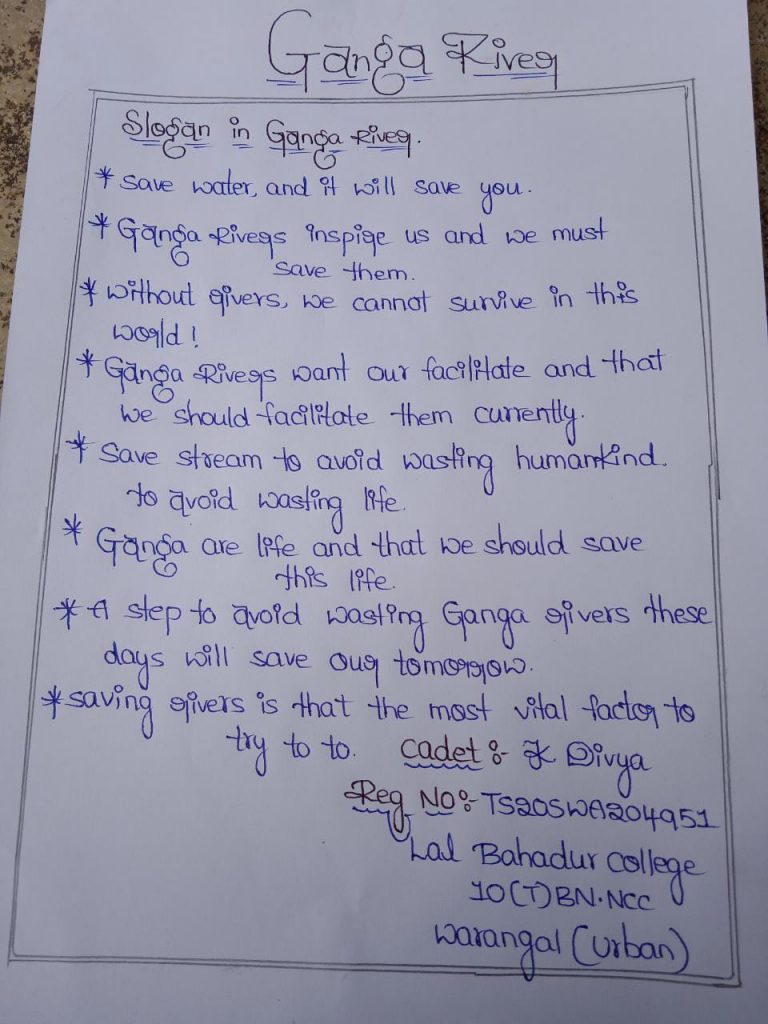 Ganga River
Slogan in Ganga River.
* Save water, and it will save you.
* Ganga Rivers inspire us and we must
save them.
* without rivers, we cannot survive in this
world!
* Ganga Rivers want our facilitate and that
we should facilitate them currently.
* Save stream to avoid wasting humankind.
to avoid wasting life.
* Ganga are life and that we should save
this life.
* A step to avoid wasting Ganga rivers these
days will save our tomorrow.
* saving rivers is that the most vital factor to
try to to. Cadet :- K Divya
Reg No:- TS20SWA204951
Lal Bahadur college
10(T)BN.NCC
Warangal (Urban)